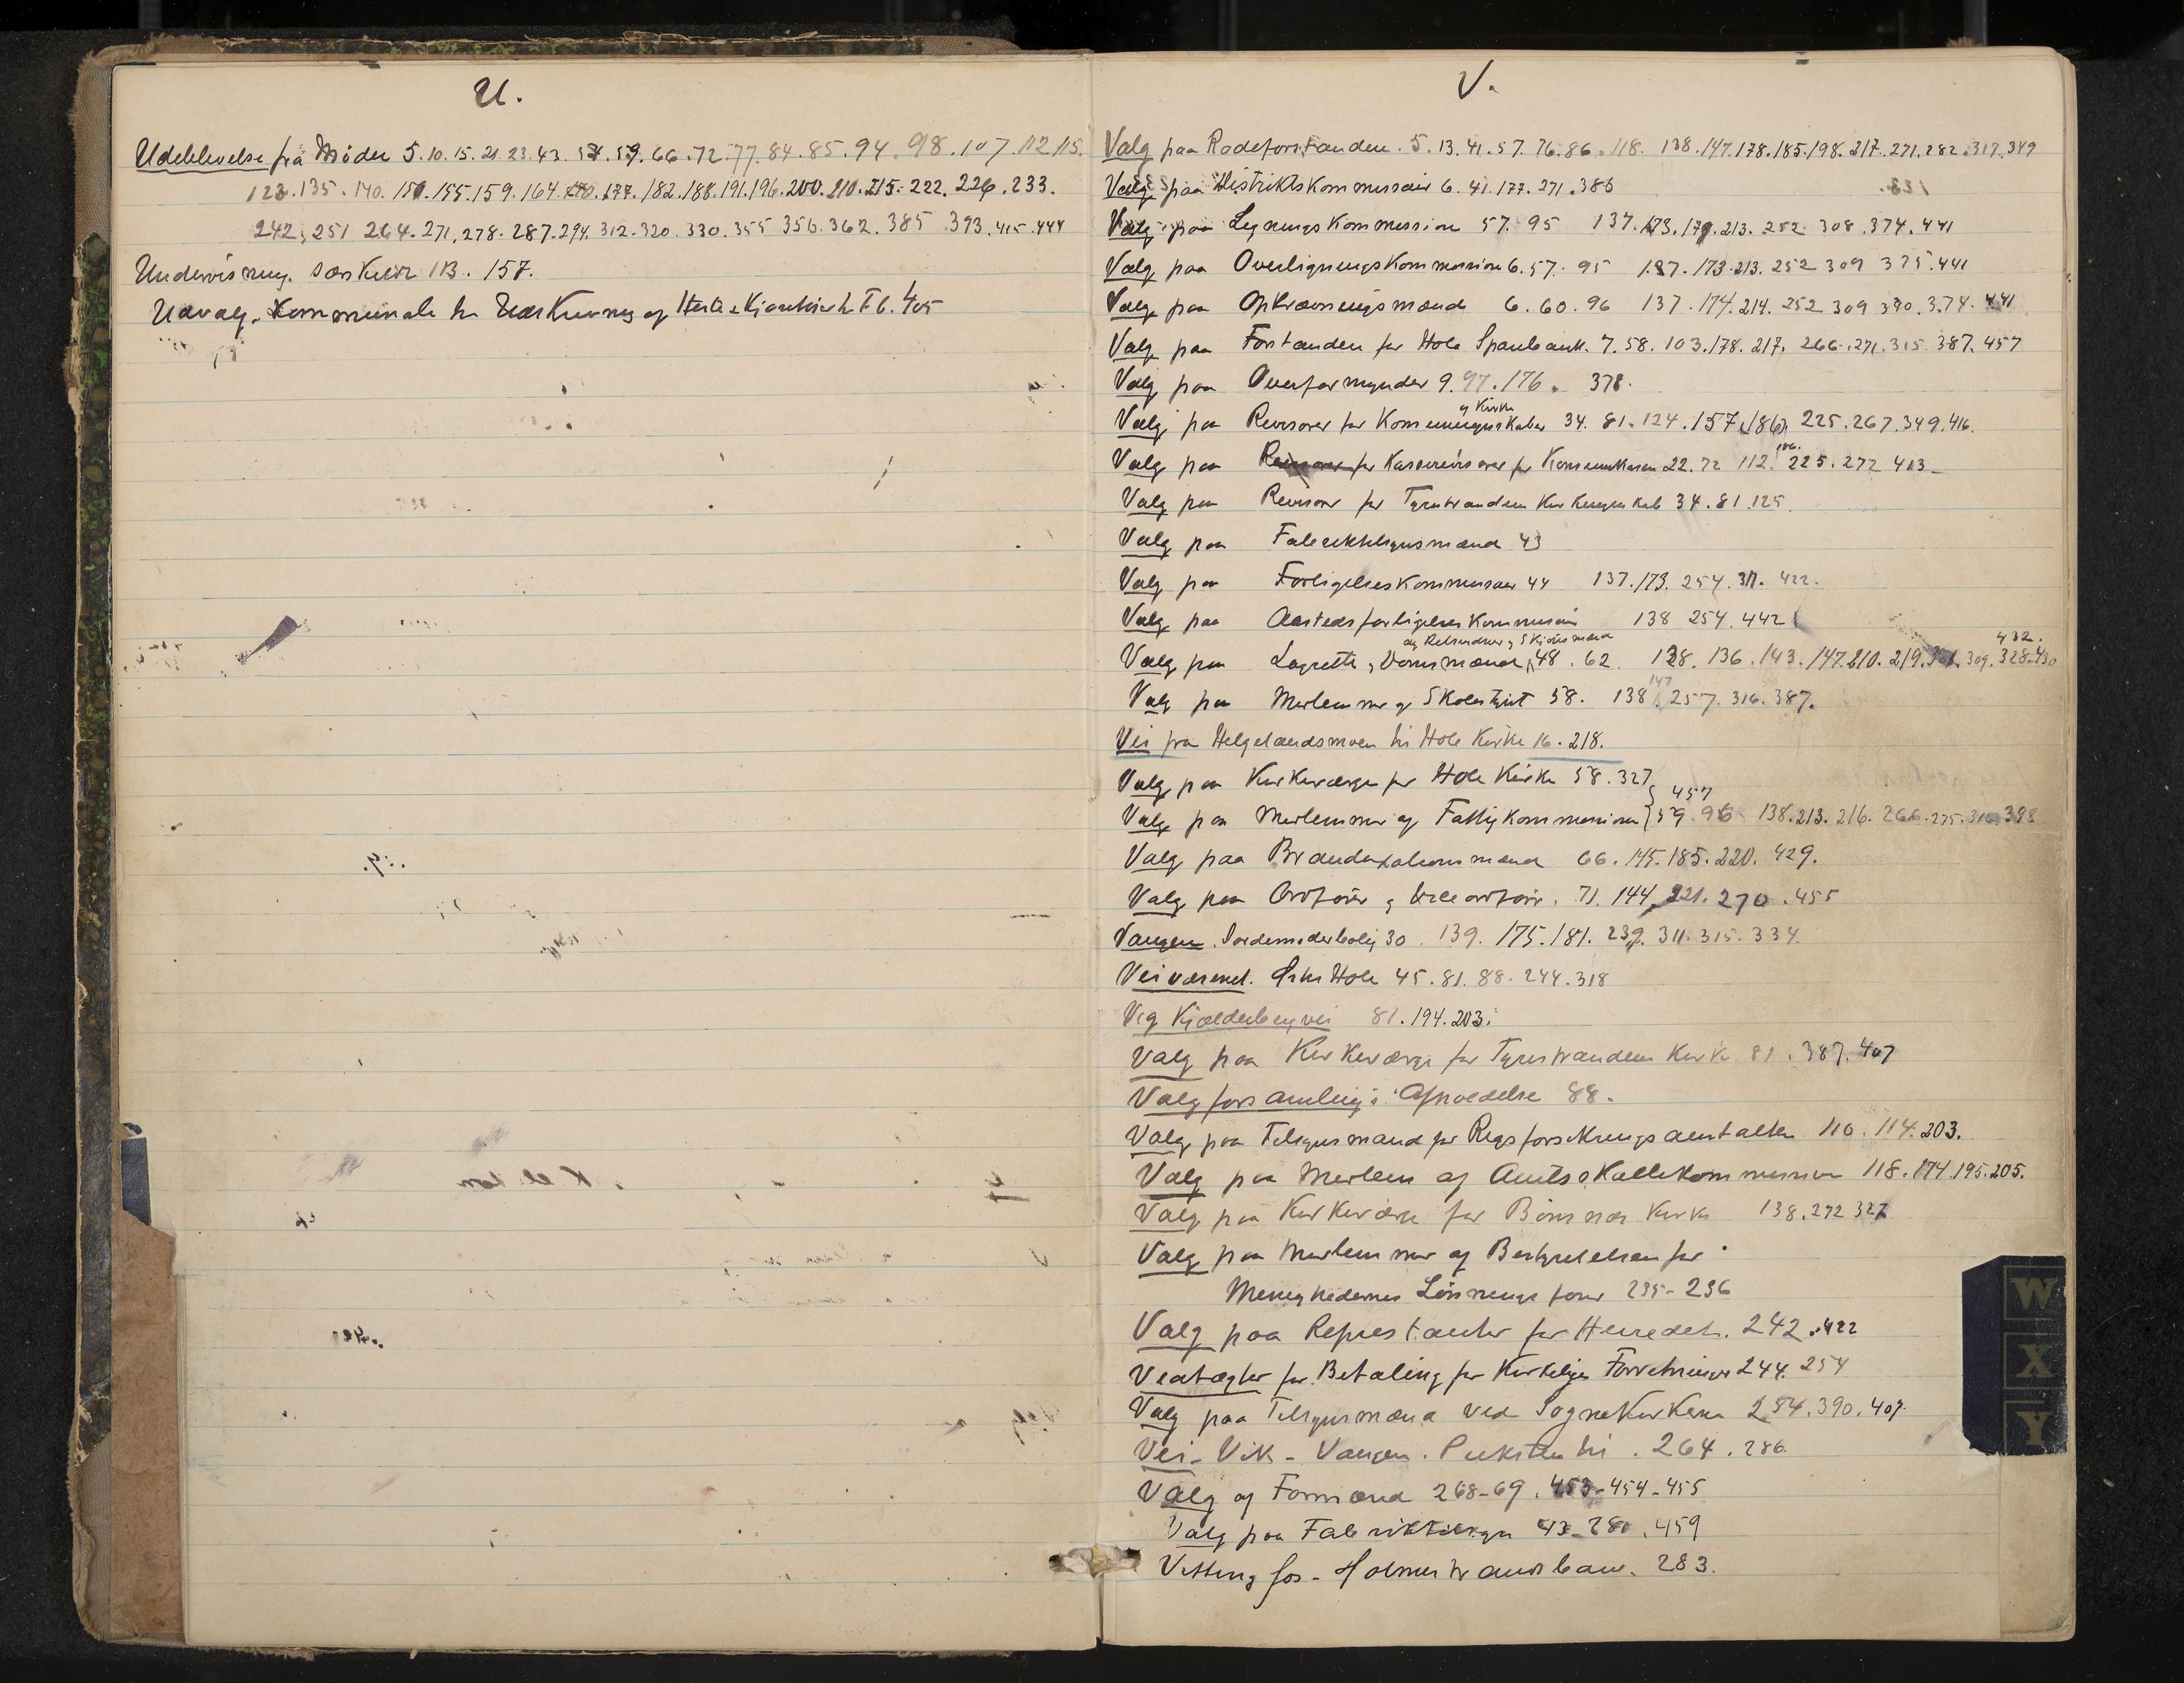 U.
Udeblivelse fra Møder 5.10.15.21.23.43.54.59.66.72.77.84.85.94.98.107.112.115.
123.135.140.150.155.159.164.170.177.182.188.191.196.200.210.215.222.226.233.
242.251.264.271.278.287.294.312.320.330.355.356.362.385.393.415.444
Undervisning. særskilt 113.157.
Udvalg. Kommunale til Udskrivning af Heste & Kjøretøier 405
V.
Valg paa Rodeforstandere. 5.13.41.57.76.86.118.138.147.178.185.198.217.271.282.317.349
Valg paa Distriktskommissair 6.41.177.271.386
Valg paa Ligningskommission 57.95 137.173.179.213.252.308.374.441
Valg paa Overligningskommission 6.57.95 137.173.213.252 309 375.441
Valg paa Opkrævningsmænd 6.60.96 137.174.214.252 309 390.374.441
Valg paa Forstander for Hole Sparebank. 7.58.103.178.217.266.271.315.387.457
Valg paa Overformynder 9.97.176. 378.
Valg paa Revisorer for Kommuneregnskaber og Kirke 34.81.124.157.186. 225.267.349.416.
Valg paa Kasserevisorer for Kommunekassen 22.72 112. 186. 225.272 413
Valg paa Revisor for Tyristrandens Kirkeregnskab 34.81.125.
Valg paa Fabriktilsynsmænd 43
Valg paa Forligelseskommissær 44 137.173.254.311.422.
Valg paa Aastedsforligelseskommission 138 254.442
Valg paa Lagrette & Domsmænd og Skjønsmænd 48.62. 128.136.143.147.210.219.301.309.328.430 432.
Valg paa Medlemmer af Skolestyret 58. 138 147 257.316.387.
Vei fra Helgelandsmoen til Hole Kirke 16.218.
Valg paa Kirkeværge for Hole Kirke 58.327
Valg paa Medlemmer af Fattigkommission 59.96 138.213.216.266.275.316.388 457
Valg paa Brandtaxationsmænd 66.145.185.220.429.
Valg paa Ordfører & Viceordfører. 71.144.221.270.455
Vangen Jordemoderbolig 30.139.175.181.239.311.315.334.
Veivæsenet. Hole 45.81.88.244.318
Vig Kjælderbergvei 81.194.203.
Valg paa Kirkeværge for Tyristrandens Kirke 81.387.407
Valgforsamling 88.
Valg paa Tilsynsmand for Rigsforsikringsanstalten 110.114.203.
Valg paa Medlem af Amtsskattekommission 118.174.195.205.
Valg paa Kirkeværge for Bønsnes Kirke 138.272 327
Valg paa Medlemmer af Bestyrelsen for
Menighedernes Lønningsfond 235-236
Valg paa Repræstanter for Herredet. 242.422
Vedtægter for Betaling for Kirkelige Forretninger 244.254
Valg paa Tilsynsmænd ved Sognekirkerne 254.390.407.
Vei-Vik-Vangen. Puksten til. 264.286.
Valg af Formænd 268-69.453-454-455
Valg paa Fabriktilsyn 43-280.459
Vittingfos-Holmestrandsbane. 283.
W
X
Y